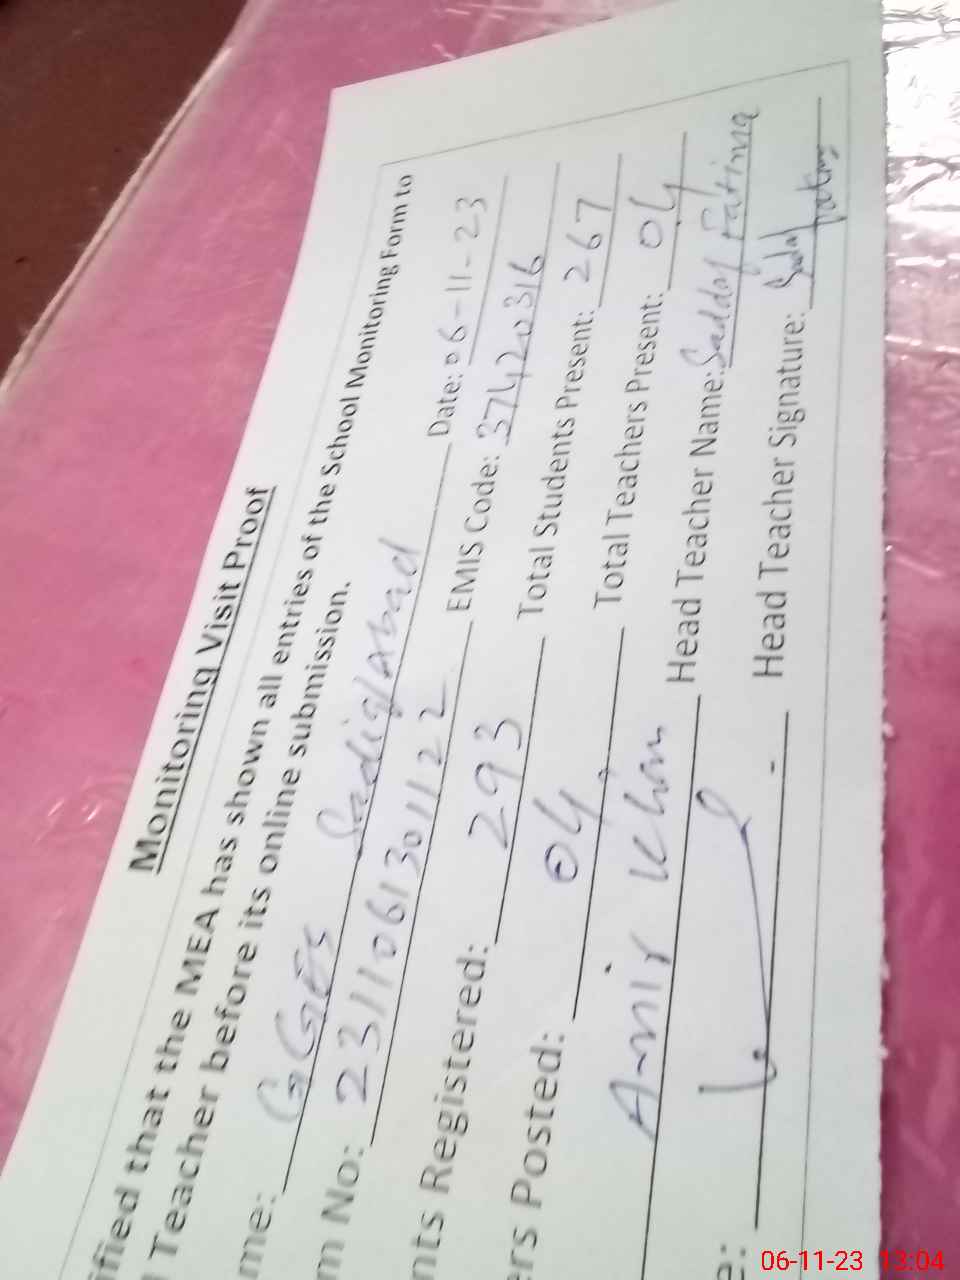 Monitoring Visit Proof
ified that the MEA has shown all entries of the School Monitoring Form to
Teacher before its online submission.
me: GGES Sadiqabad Date: 06-11-23
m No: 2311061301122 EMIS Code: 37420316
nts Registered: 293 Total Students Present: 267
ers Posted: 04 Total Teachers Present: 04
Amir Khan Head Teacher Name: Saddaf Fatima
e: Head Teacher Signature:
06-11-23 13:04